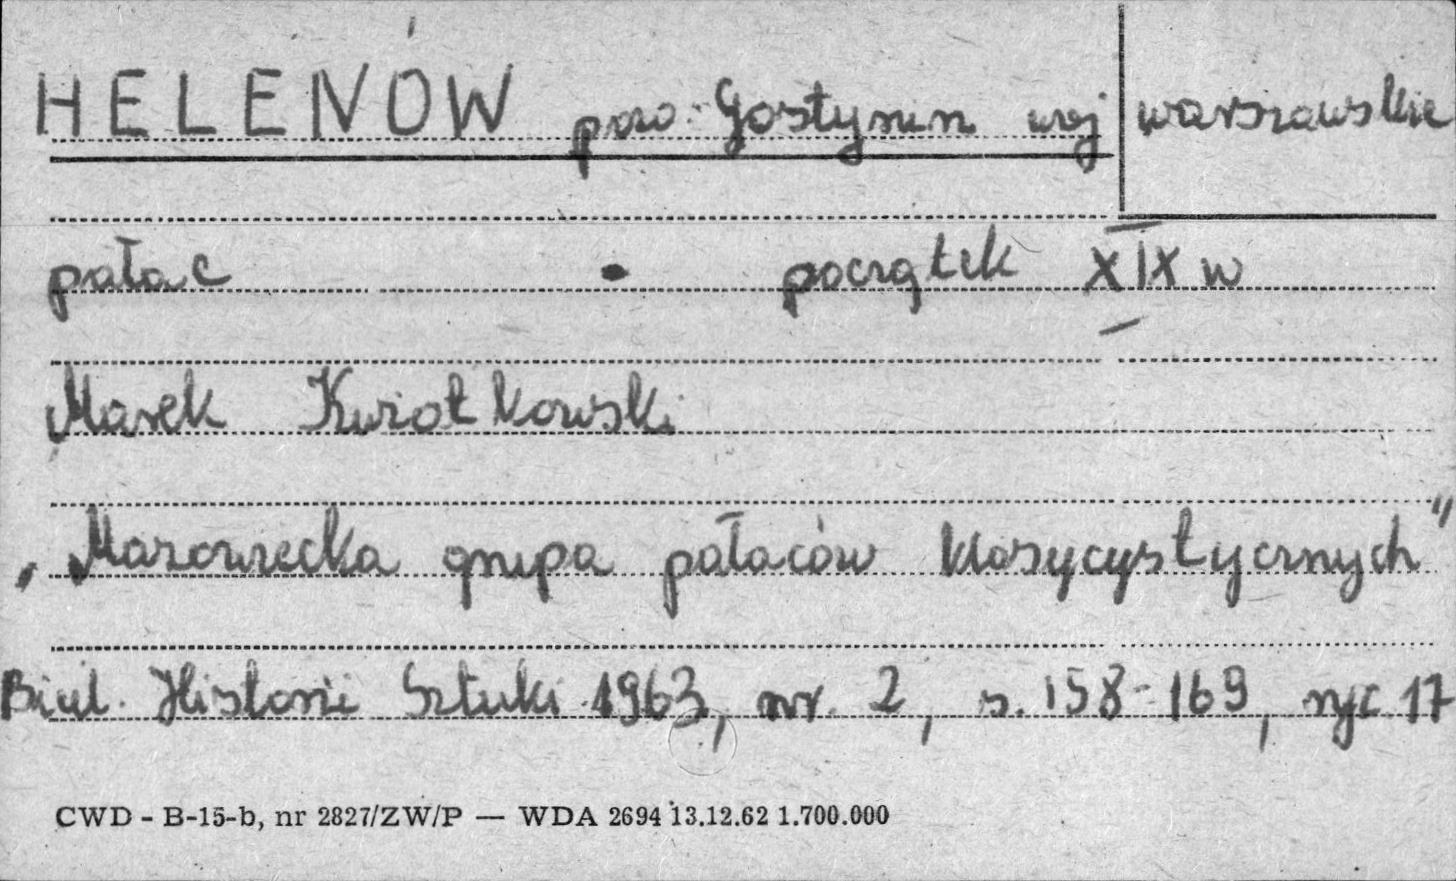 HELENÓW pow. Gostynin woj warszawskie
pałac • początek XIX w
Marek Kwiatkowski
„Mazowiecka grupa pałaców klasycystycznych"
Biul. Historii Sztuki 1963, nr. 2, s. 158-169, ryc. 17
CWD - B-15-b, nr 2827/ZW/P — WDA 2694 13.12.62 1.700.000